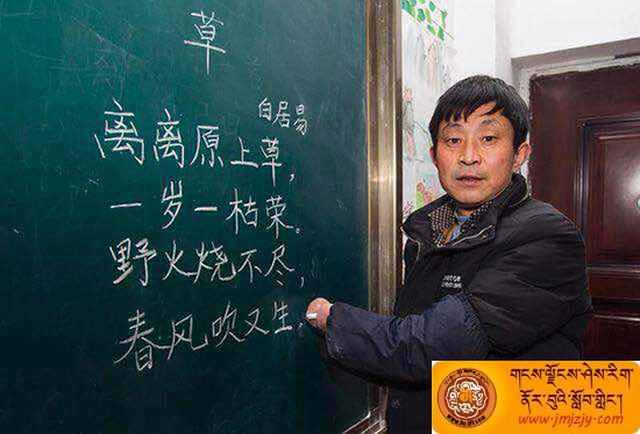 草
白居易
离离原上草，
一岁一枯荣。
野火烧不尽，
春风吹又生。
གངས་ལྗོངས་ཤེས་རིག
ནོར་བུའི་སློབ་གླིང་།
www.jmjzjy.com